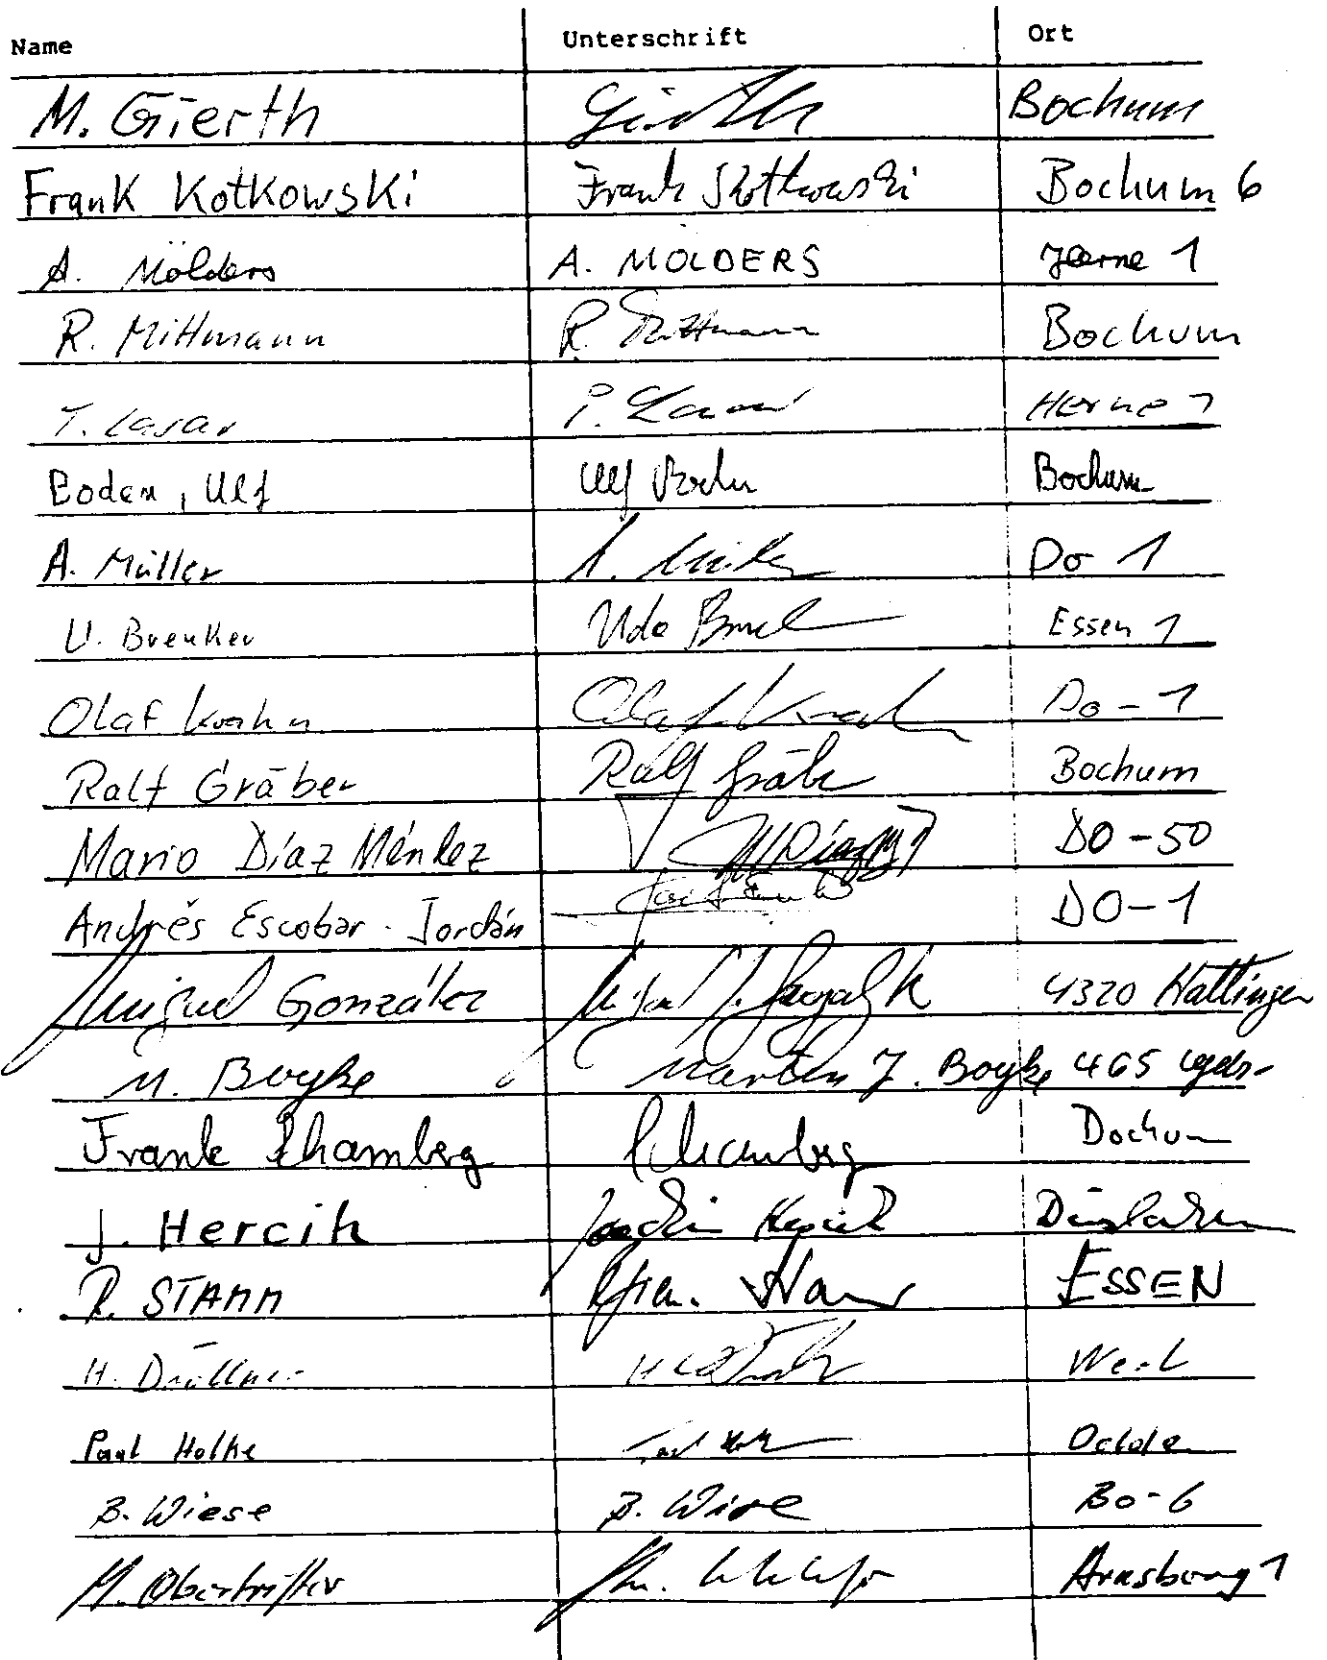 Name Unterschrift Ort
M. Gierth Gierth Bochum
Frank Kotkowski Frank Kotkowski Bochum 6
A. Mölders A. MÖLDERS Herne 1
R. Mittmann R. Mittmann Bochum
T. Lasar Herne 1
Boden, Ulf Ulf Boden Bochum
A. Müller A. Müller Do 1
U. Brenker Udo Essen 1
Olaf Krahn Olaf Krahn Do-1
Ralf Gräber Ralf Gräber Bochum
Mario Díaz Méndez DO-50
Andrés Escobar-Jordán DO-1
Miguel González 4320 Hattingen
M. Boyke Martin J. Boyke 465
Frank Schamberg Schamberg Bochum
J. Hercik Joachim Hercik Dinslaken
R. STAMM Stamm ESSEN
H. Werl
Paul Holke Paul
B. Wiese B. Wiese Bo-6
M. Arnsberg 1